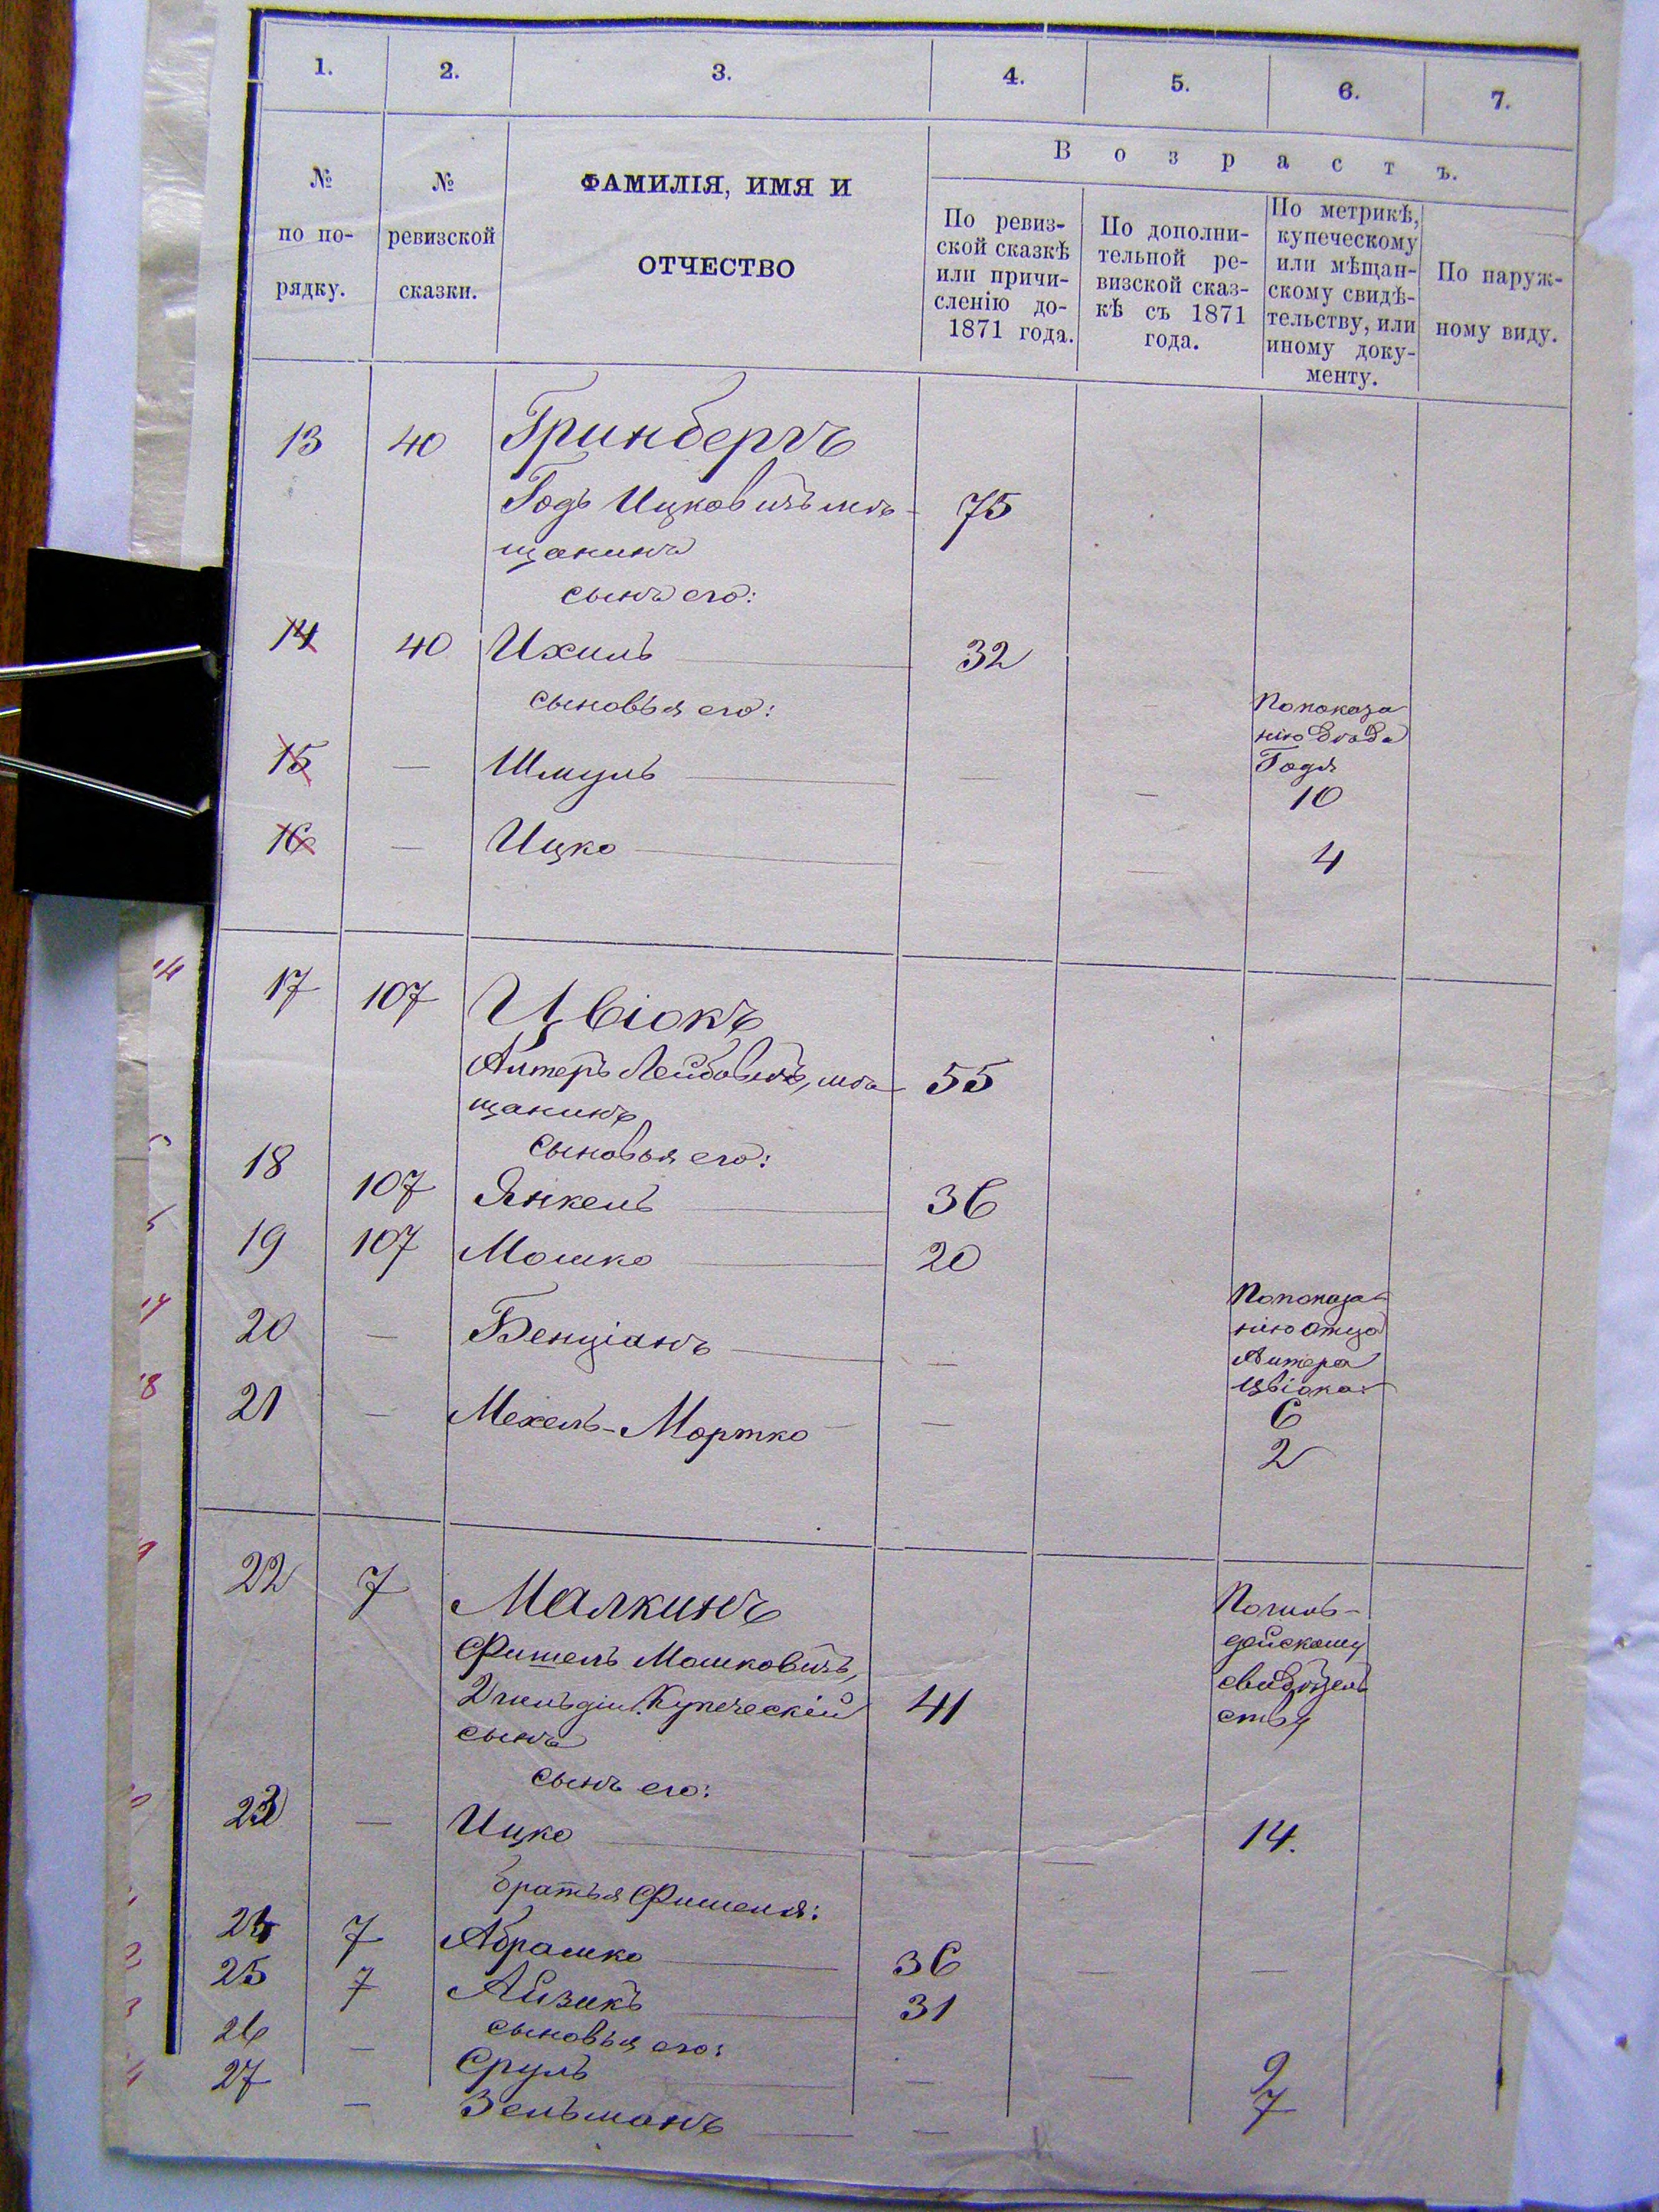 1. 2. 3. 4. 5. 6. 7.
№ по по-рядку.
№ ревизской сказки.
ФАМИЛІЯ, ИМЯ И
ОТЧЕСТВО
Возрастъ.
По ревиз-
ской сказкѣ
или причи-
сленію до
1871 года.
По дополни-
тельной ре-
визской сказ-
кѣ съ 1871
года.
По метрикѣ,
купеческому
или мѣщан-
скому свидѣ-
тельству, или
иному доку-
менту.
По наруж-
ному виду.
13 40 Гринбергъ
Годъ Ицковичъ мѣ- 75
щанинъ
сынъ его:
14 40 Ихиль 32
сыновья его:
По показа
нію дѣда
Годя
15 — Шмуль — — 10
16 — Ицко — — 4
17 107 Цвіокъ
Алтеръ Лейбовичъ, мѣ 55
щанинъ
сыновья его:
18 107 Янкель 36
19 107 Мошко 20
По показа-
нію отца
Алтера
Цвіока:
20 — Бенціанъ — 6
21 — Мехель-Мортко — 2
22 7 Малкинъ
Фишель Мошковичъ,
2 гильдіи Купеческій 41
сынъ
По гиль-
дейскому
свидѣтель
ству
сынъ его:
23 — Ицко — — 14.
братья Фишеля:
24 7 Абрашко 36 — —
25 7 Айзикъ 31
сыновья его:
26 — Сруль — — 9
27 — Зельманъ — 7